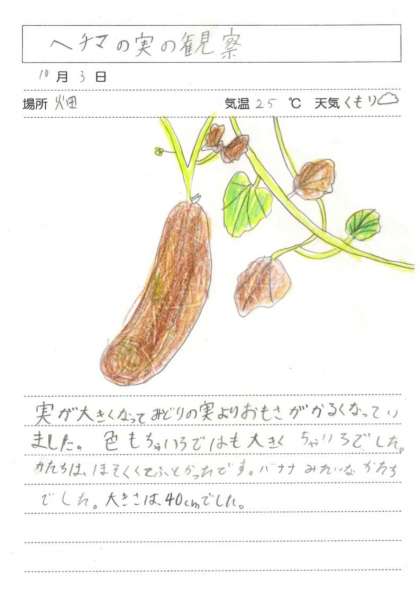 ヘチマの実の観察
10月3日
場所 畑 気温 25 ℃ 天気 くもり
実が大きくなってみどりの実よりおもさがかるくなってい
ました。色もちゃいろではも大きく ちゃいろでした。
かたちは、ほそくてふとかったです。バナナみたいなかたち
でした。大きさは、40cmでした。